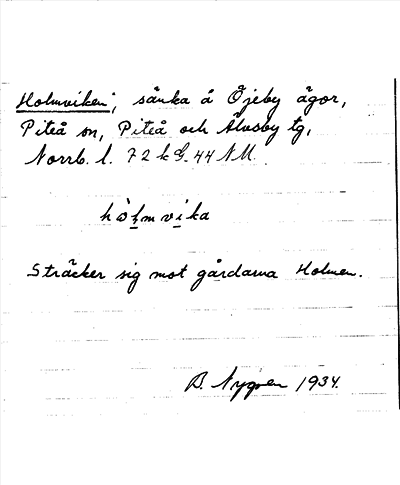 Holmviken; sänka å Öjeby ägor,
Piteå sn, Piteå och Älvsby tg,
Norrb. l. 72 k G. 44 NM.
hòḷmvi̱ka
Sträcker sig mot gårdarna Holmen.
B. Nygren 1934.